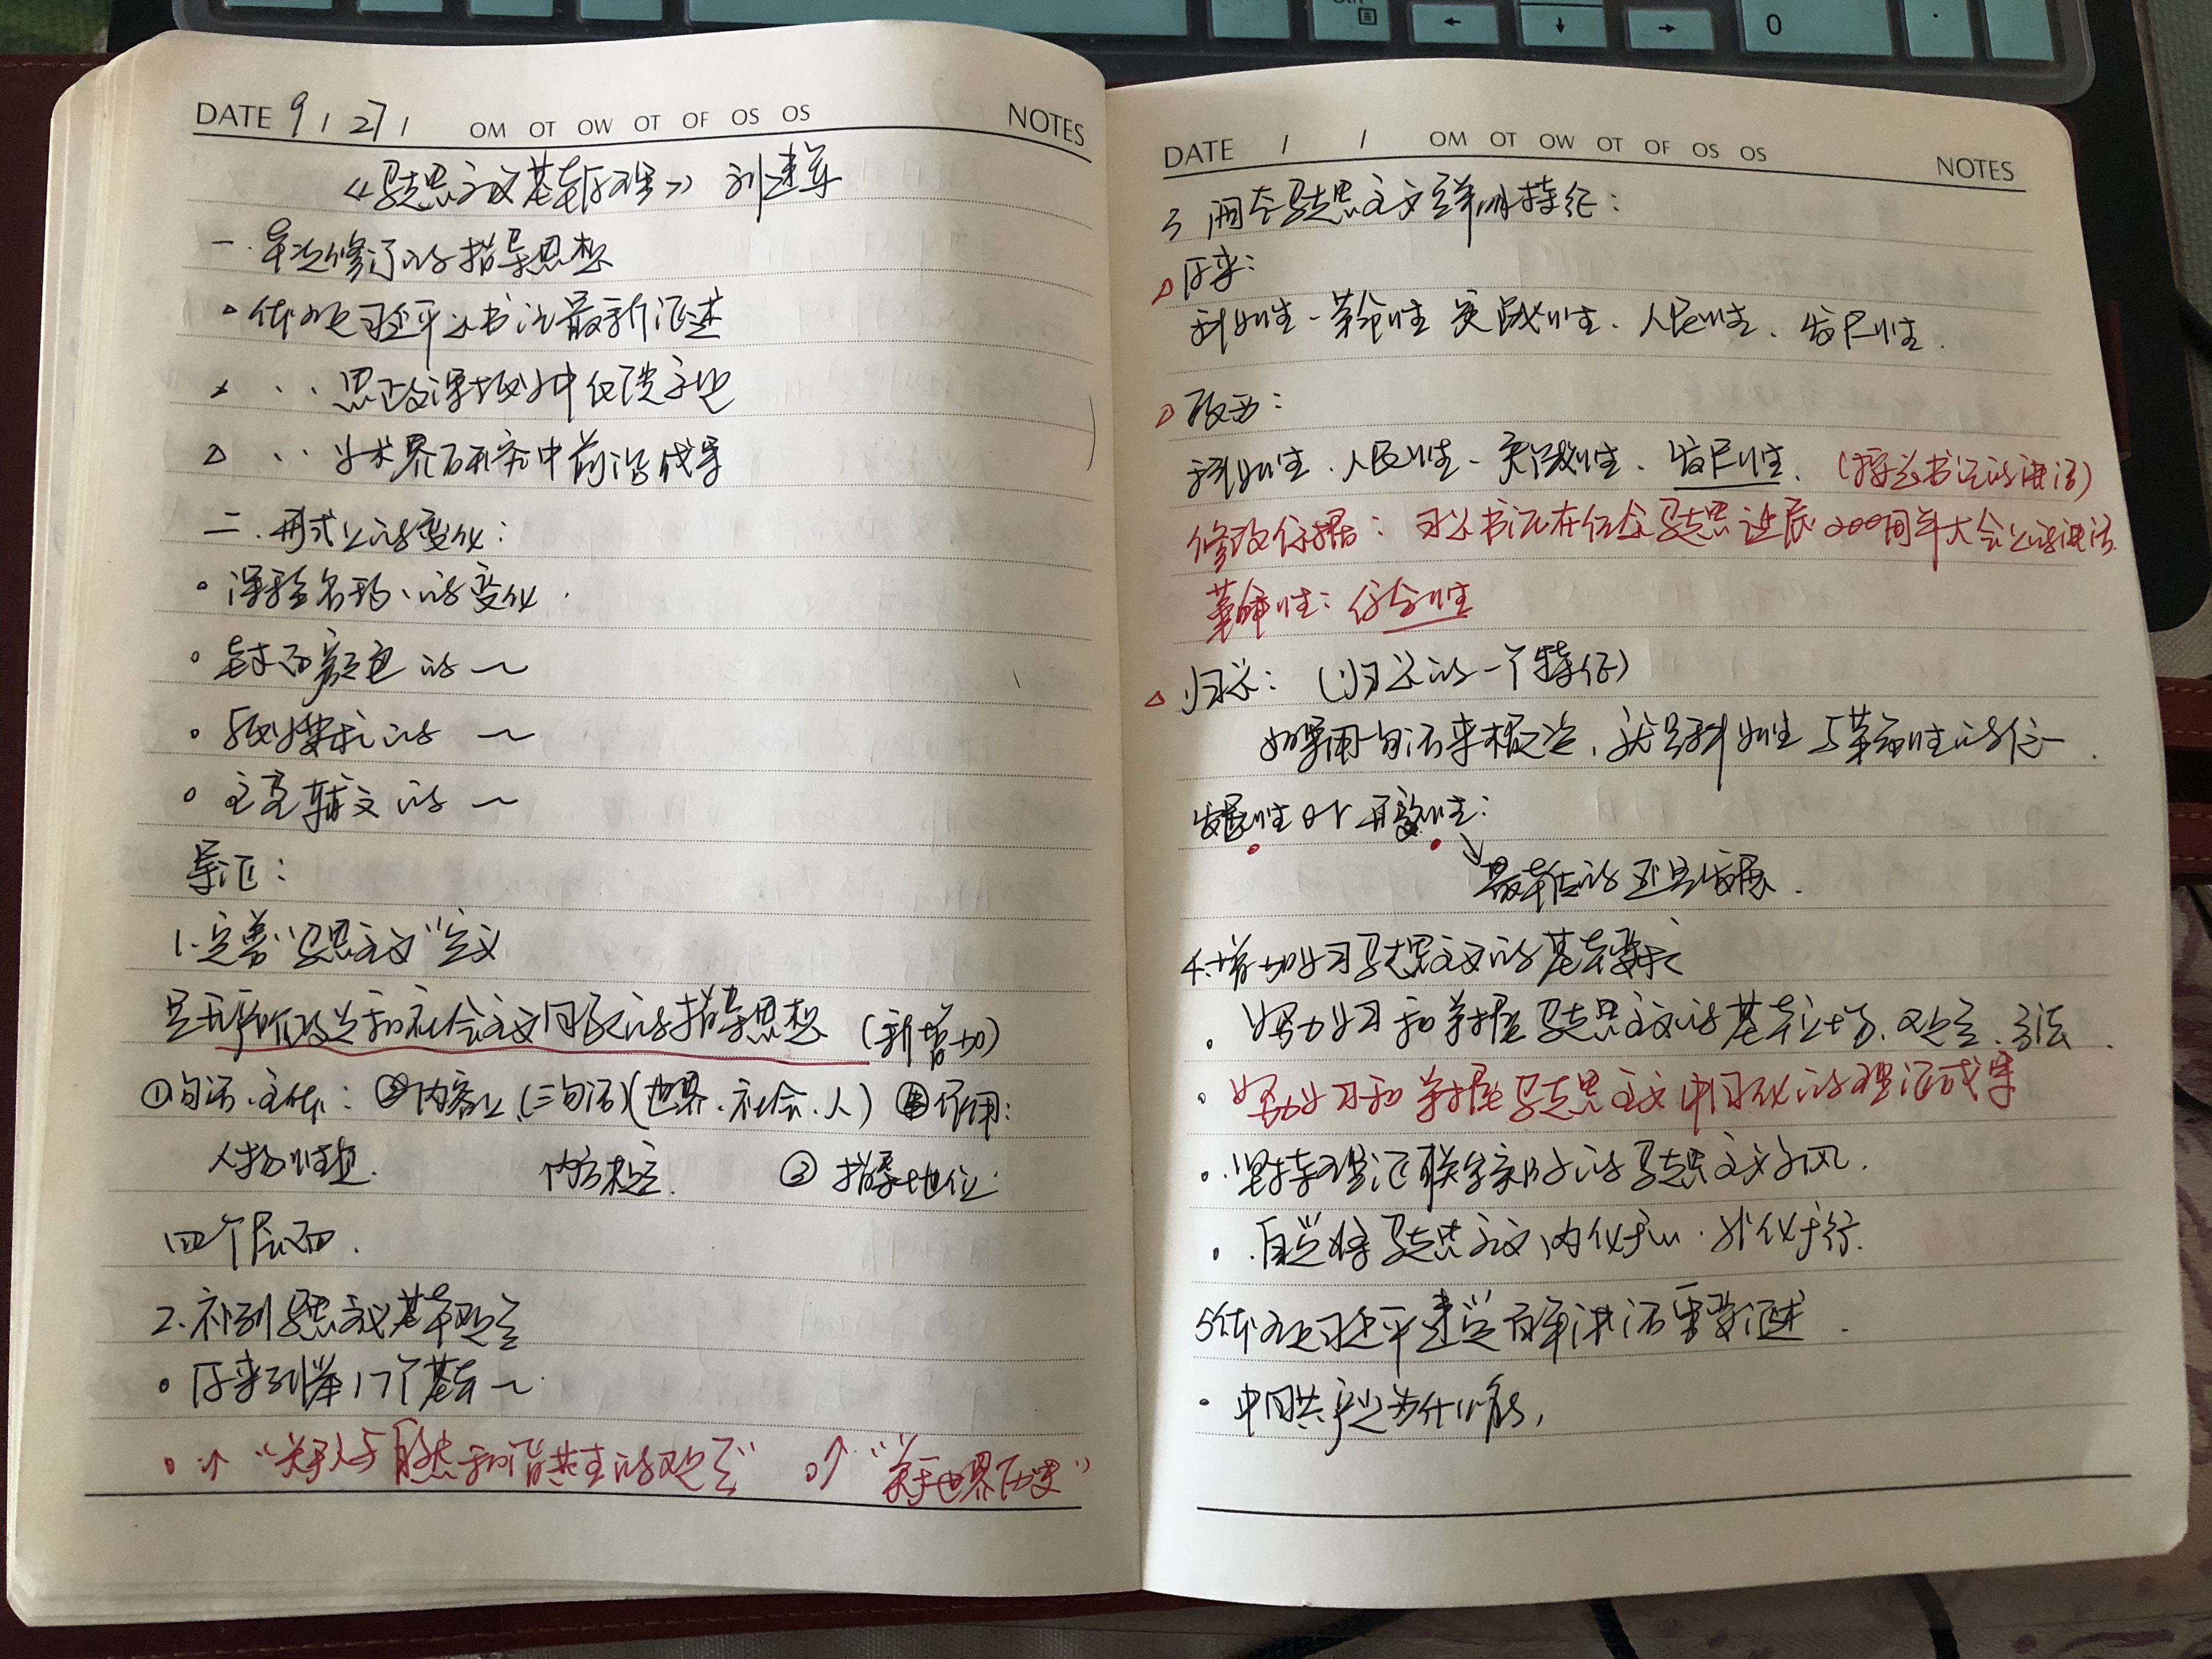 DATE 9 / 27 / OM OT OW OT OF OS OS NOTES
《马克思主义基本原理》 刘建军
一. 本次修订的指导思想
体现习近平总书记最新论述
〃 〃 思政课教学中
△ 〃 〃 学术界研究中前沿成果
二. 形式上的变化：
○ 课程名称的变化.
○ 封面颜色的 〜
○ 的 〜
○ 文的 〜
导论：
1.完善“马思主义”定义
是无产阶级政党和社会主义国家的指导思想 (新增加)
①句话.主体： ②内容上(三句话)(世界.社会.人) ④作用：
人物性质. 内容 ③ 指导地位
四个层面.
2.补列马思主义基本观点
○ 原来列举17个基本〜
○ ↑ “关于人与自然和谐共生的观点” ○↑ “关于世界历史”
DATE / / OM OT OW OT OF OS OS NOTES
3 马克思主义鲜明特征：
△ 原来：
科学性、革命性 实践性、人民性、发展性.
△ 改为：
科学性、人民性、实践性、发展性. (按总书记的讲话)
修改依据：习总书记在纪念马克思诞辰200周年大会上的讲话.
革命性：
△ 归总： (归总的一个特征)
如果用一句话来概括，就是科学性与革命性的统一.
发展性 or 开放性：
最本质的还是发展.
4.增加学习马克思主义的基本要求
. 努力学习和掌握马克思主义的基本立场、观点、方法.
. 努力学习和掌握马克思主义中国化的理论成果
. 坚持理论联系实际的马克思主义学风.
. 自觉将马克思主义内化于心.外化于行.
5体现习近平建党百年讲话重要论述.
. 中国共产党为什么能，